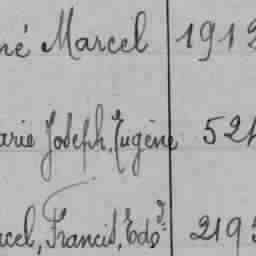 né Marcel 1912
arie Joseph, Eugène 524
rcel, Francis, Edd 2193